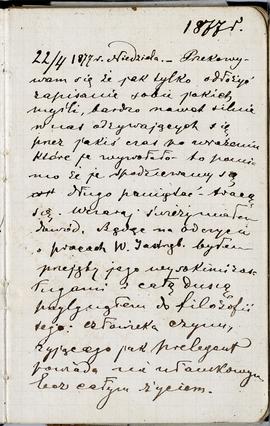 1877 r.
22/4 1877 r. Niedziela. – Przekony-
wam się że jak tylko odłożyć
zapisanie sobie jakich
myśli, bardzo nawet silnie
w nas odzywających się
przez jakiś czas po wrażeniu
które je wywołało to pomi-
mo że je spodziewamy się
długo pamiętać – tracą
się. Wczoraj świeży miałem
dowód. Będąc na odczycie
o pracach W. Jastrzęb. byłem
przejęty jego wysokimi zas-
ługami i całą duszą
przylgnąłem do filozofii
tego: człowieka czynu,
żyjącego jak prelegent
powiada na ułamkowym
lecz całym życiem.